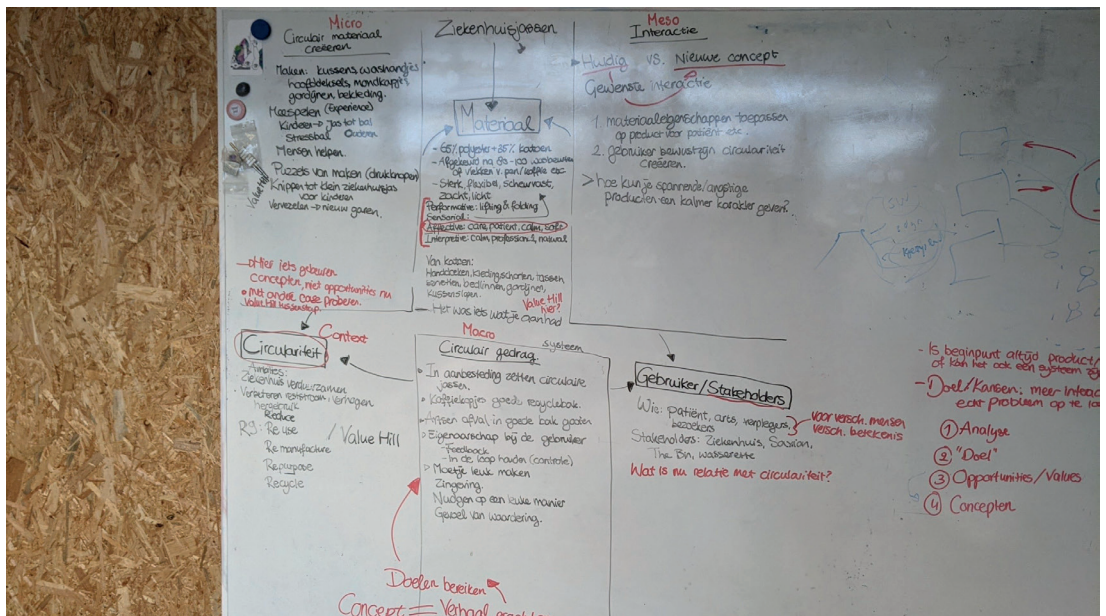 Micro
Circulair materiaal
creëeren
Maken: kussens, washandjes
hoofddeksels, mondkapjes
gordijnen bekleding.
Meespelen (Experience)
Kinderen → jas tot bal
Stressbal Ouderen
Mensen helpen.
Puzzels van maken (drukknopen)
Knippen tot klein ziekenhuisjas
voor kinderen
Vervezelen → nieuw garen.
Value Hill
Hier iets gebeuren
concepten, niet opportunities nu
• Met andere case proberen.
Value Hill tussenstap.
Ziekenhuisjassen
Materiaal
- 65% polyester + 35% katoen
- Afgekeurd na 80-100 wasbeurten
of vlekken v. pen/koffie etc
- Sterk, flexibel, scheurvast,
zacht, licht
Performative: lifting & folding
Sensorial:
Affective: care, patient, calm, soft
Interpretive: calm, professional, natural
Van katoen:
Handdoeken, kleding, schorten, tassen
lonetten, bedlinnen, gordijnen,
kussenslopen.
Value Hill
hier?
— Het was iets wat je aan had
Meso
Interactie
Huidig vs. Nieuwe concept
Gewenste interactie
1. materiaaleigenschappen toepassen
op product voor patiënt etc.
2. gebruiker bewustzijn circulariteit
creëeren.
> hoe kun je spannende/angstige
producten een kalmer karakter geven?
Context
Circulariteit
Ambities:
Ziekenhuis verduurzamen
Verbeteren reststroom, verhogen
hergebruik
Reduce
R's: Re use / Value Hill
Re manufacture
Repurpose
Recycle
Macro
systeem
Circulair gedrag
In aanbesteding zetten circulaire
jassen.
Koffiekopjes goede recyclebak.
Artsen afval in goede bak gooien
Eigenaarschap bij de gebruiker
- Feedback
- In de loop houden (controle)
> Moet je leuk maken
Zingeving.
Nudgen op een leuke manier
Gevoel van waardering.
Doelen bereiken
Concept = Verhaal
Gebruiker/Stakeholders
Wie: patiënt, arts, verplegers,
bezoekers
voor versch. mensen
versch. betekenis
Stakeholders: Ziekenhuis, Saxion,
The Bin, wasserette
Wat is nu relatie met circulariteit?
- Is beginpunt altijd product/
of kan het ook een systeem
- Doel/Kansen; meer
echt probleem op te
① Analyse
② "Doel"
③ Opportunities/Values
④ Concepten